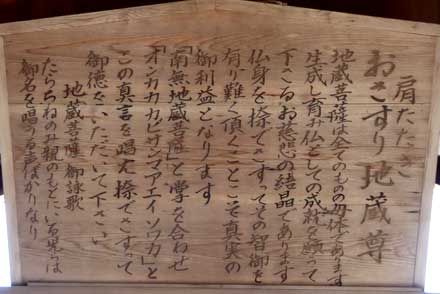 肩たたき
おさすり地蔵尊
地蔵菩薩は全てのものの母体であります
生成し育み仏としての成就を願って
下さるお慈悲の結晶であります
仏身を捺でさすってその智御を
有り難く頂くことこそ真実の
御利益となります
「南無地蔵菩薩」と掌を合わせ
「オンカカカビサンマアエイソワカ」と
この真言を唱え捺でさすって
御徳をいただいて下さい
地蔵菩薩 御詠歌
たらちねのみ親のもとにいる児らは
御名を唱うる声ばかりなり